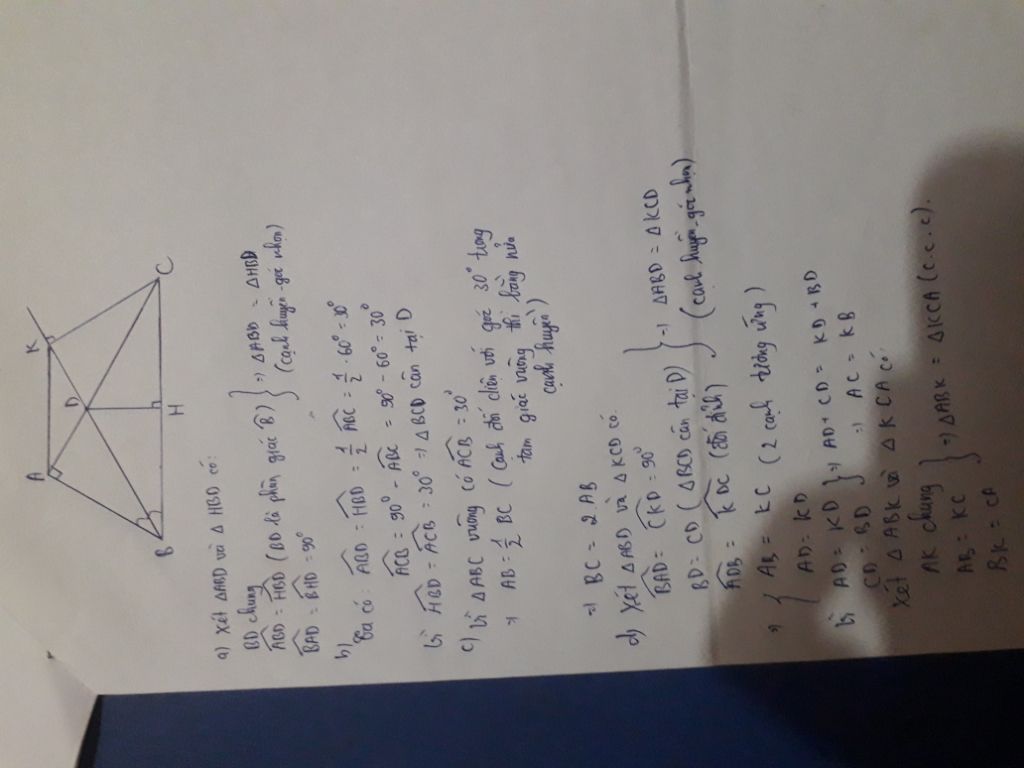 A
K
D
B
H
C
a) Xét ΔABD và Δ HBD có:
BD chung
ABD = HBD (BD là phân giác B) } => ΔABD = ΔHBD
BAD = BHD = 90° (cạnh huyền - góc nhọn)
b)
Ta có: ABD = HBD = 1/2 ABC = 1/2 . 60° = 30°
ACB = 90° - ABC = 90° - 60° = 30°
Vì HBD = ACB = 30° => ΔBCD cân tại D
c) Vì ΔABC vuông có ACB = 30°
=> AB = 1/2 BC ( Cạnh đối diện với góc 30° trong
tam giác vuông thì bằng nửa
cạnh huyền)
=> BC = 2 AB
d) Xét ΔABD và ΔKCD có.
BAD = CKD = 90°
BD = CD ( ΔBCD cân tại D) } => ΔABD = ΔKCD
ADB = KDC (đối đỉnh) (cạnh huyền - góc nhọn)
=> { AB = KC ( 2 cạnh tương ứng )
AD = KD
Vì AD = KD } => AD + CD = KD + BD
CD = BD => AC = KB
Xét Δ ABK và Δ KCA có
AK chung
AB = KC } => ΔABK = ΔKCA (c.c.c).
BK = CA